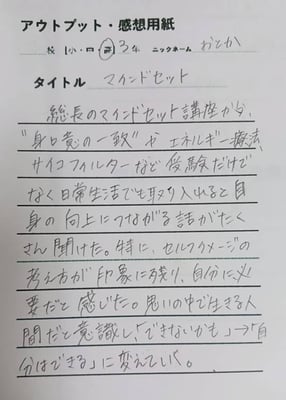 アウトプット・感想用紙
校 小・中・高 3年 ニックネーム おとか
タイトル マインドセット
総長のマインドセット講座から、
"身口意の一致"やエネルギー療法、
サイコフィルターなど受験だけで
なく日常生活でも取り入れると自
身の向上につながる話がたく
さん聞けた。特に、セルフイメージの
考え方が印象に残り、自分に必
要だと感じた。思いの中で生きる人
間だと意識し、「できないかも」→「自
分はできる」に変えていく。